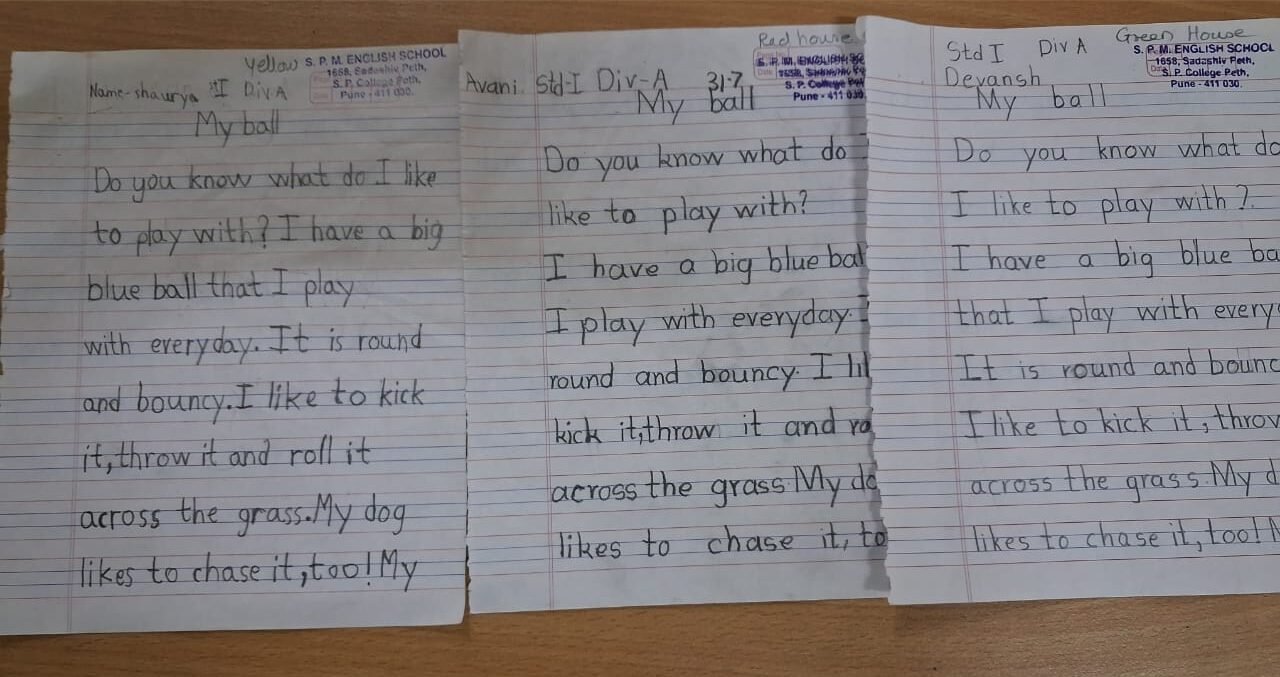 Yellow
S. P. M. ENGLISH SCHOOL
1658, Sadashiv Peth,
S. P. College Peth,
Pune - 411 030.
Name-shaurya I Div A
My ball
Do you know what do I like
to play with? I have a big
blue ball that I play
with everyday. It is round
and bouncy. I like to kick
it, throw it and roll it
across the grass. My dog
likes to chase it, too! My
Red house
S. P. M. ENGLISH
S. P. College
Pune - 411 030.
Avani Std-I Div-A 31-7
My ball
Do you know what do
like to play with?
I have a big blue bal
I play with everyday.
round and bouncy. I li
kick it, throw it and ro
across the grass. My do
likes to chase it, to
Green House
S. P. M. ENGLISH SCHOOL
1658, Sadashiv Peth,
S. P. College Peth,
Pune - 411 030.
Std I Div A
Devansh
My ball
Do you know what do
I like to play with?
I have a big blue ba
that I play with every
It is round and bounc
I like to kick it, throw
across the grass. My d
likes to chase it, too!